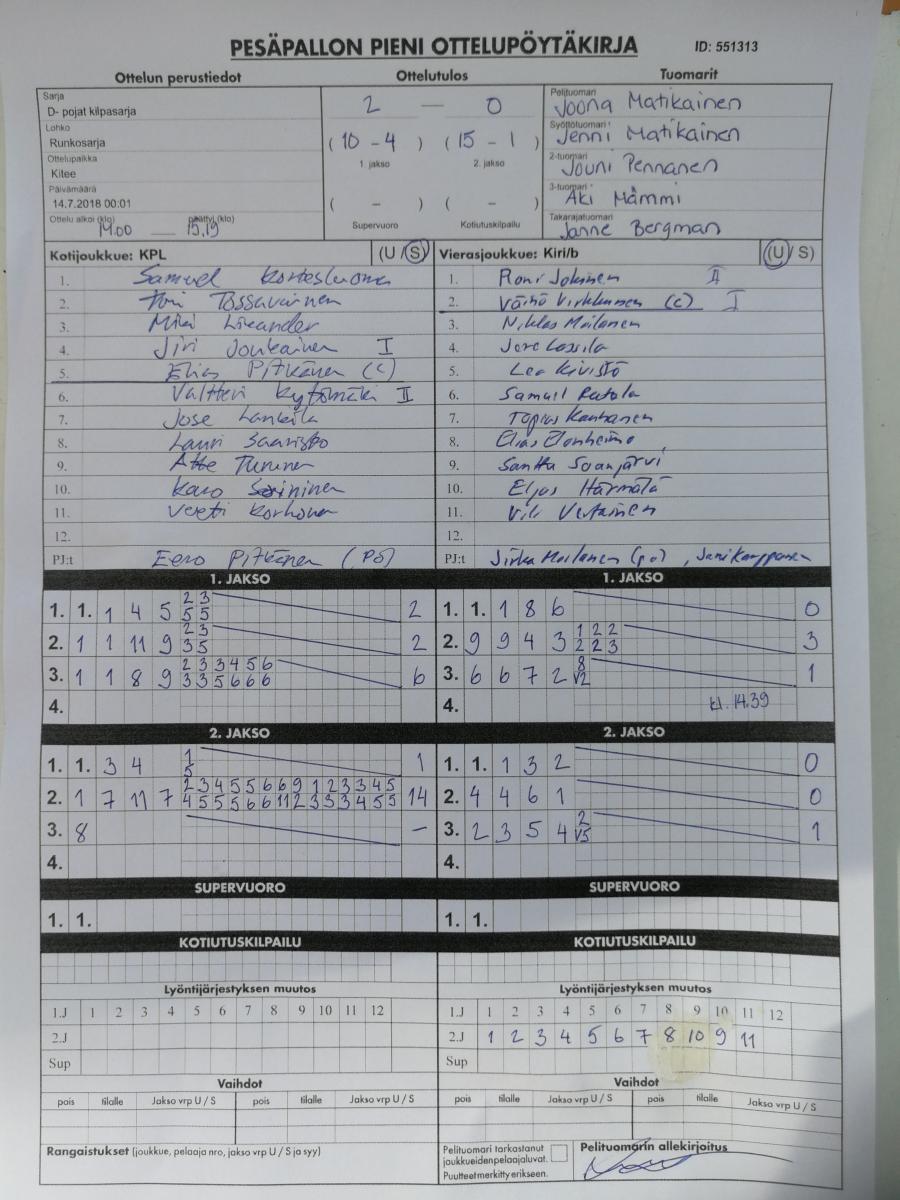 PESÄPALLON PIENI OTTELUPÖYTÄKIRJA
ID: 551313
Ottelun perustiedot
Ottelutulos
Tuomarit
Sarja
D- pojat kilpasarja
Lohko
Runkosarja
Ottelupaikka
Kitee
Päivämäärä
14.7.2018 00:01
Ottelu alkoi (klo) päättyi (klo)
14.00 — 15,19
2 — 0
(10 - 4) (15 - 1)
1. jakso 2. jakso
( - ) ( - )
Supervuoro Kotiutuskilpailu
Pelituomari
Joona Matikainen
Syöttötuomari
Jenni Matikainen
2-tuomari
Jouni Pennanen
3-tuomari
Aki Mämmi
Takarajatuomari
Janne Bergman
Kotijoukkue: KPL (U / S)
1. Samuel Kortesluoma
2. Tossavainen
3.
4. Jiri Joukainen I
5. Elias Pitkänen (c)
6. Valtteri Kytömäki II
7. Jose Lankila
8. Lauri Saaristo
9. Atte Turunen
10.
11. Veeti Korhonen
12.
PJ:t Eero Pitkänen (PJ)
Vierasjoukkue: Kiri/b (U / S)
1. Roni Jokinen II
2. Väinö Virkkunen (c) I
3. Niklas Moilanen
4. Jere Lassila
5. Leo Kivistö
6.
7. Topias Kauhanen
8. Elias
9. Santtu Soanjärvi
10. Eljas Härmälä
11.
12.
PJ:t Jirka Moilanen (pj), Jani Kemppainen
1. JAKSO
1. 1. 1 4 5 2 3 2
5 5
2. 1 1 11 9 2 3 2
3 5
3. 1 1 8 9 2 3 3 4 5 6 6
3 3 5 6 6 6
4.
1. JAKSO
1. 1. 1 8 6 0
2. 9 9 4 3 1 2 2 3
2 2 3
3. 6 6 7 2 8 1
V2
4. kl. 14.39
2. JAKSO
1. 1. 3 4 1 1
5
2. 1 7 11 7 2 3 4 5 5 6 6 9 1 2 3 3 4 5 14
4 5 5 5 6 6 11 2 3 3 3 4 5 5
3. 8 –
4.
2. JAKSO
1. 1. 1 3 2 0
2. 4 4 6 1 0
3. 2 3 5 4 2 1
V5
4.
SUPERVUORO
1. 1.
SUPERVUORO
1. 1.
KOTIUTUSKILPAILU
KOTIUTUSKILPAILU
Lyöntijärjestyksen muutos
1.J 1 2 3 4 5 6 7 8 9 10 11 12
2.J
Sup
Lyöntijärjestyksen muutos
1.J 1 2 3 4 5 6 7 8 9 10 11 12
2.J 1 2 3 4 5 6 7 8 10 9 11
Sup
Vaihdot
pois tilalle Jakso vrp U / S pois tilalle Jakso vrp U / S
Vaihdot
pois tilalle Jakso vrp U / S pois tilalle Jakso vrp U / S
Rangaistukset (joukkue, pelaaja nro, jakso vrp U / S ja syy)
Pelituomari tarkastanut
joukkueidenpelaajaluvat.
Puutteet merkitty erikseen.
Pelituomarin allekirjoitus